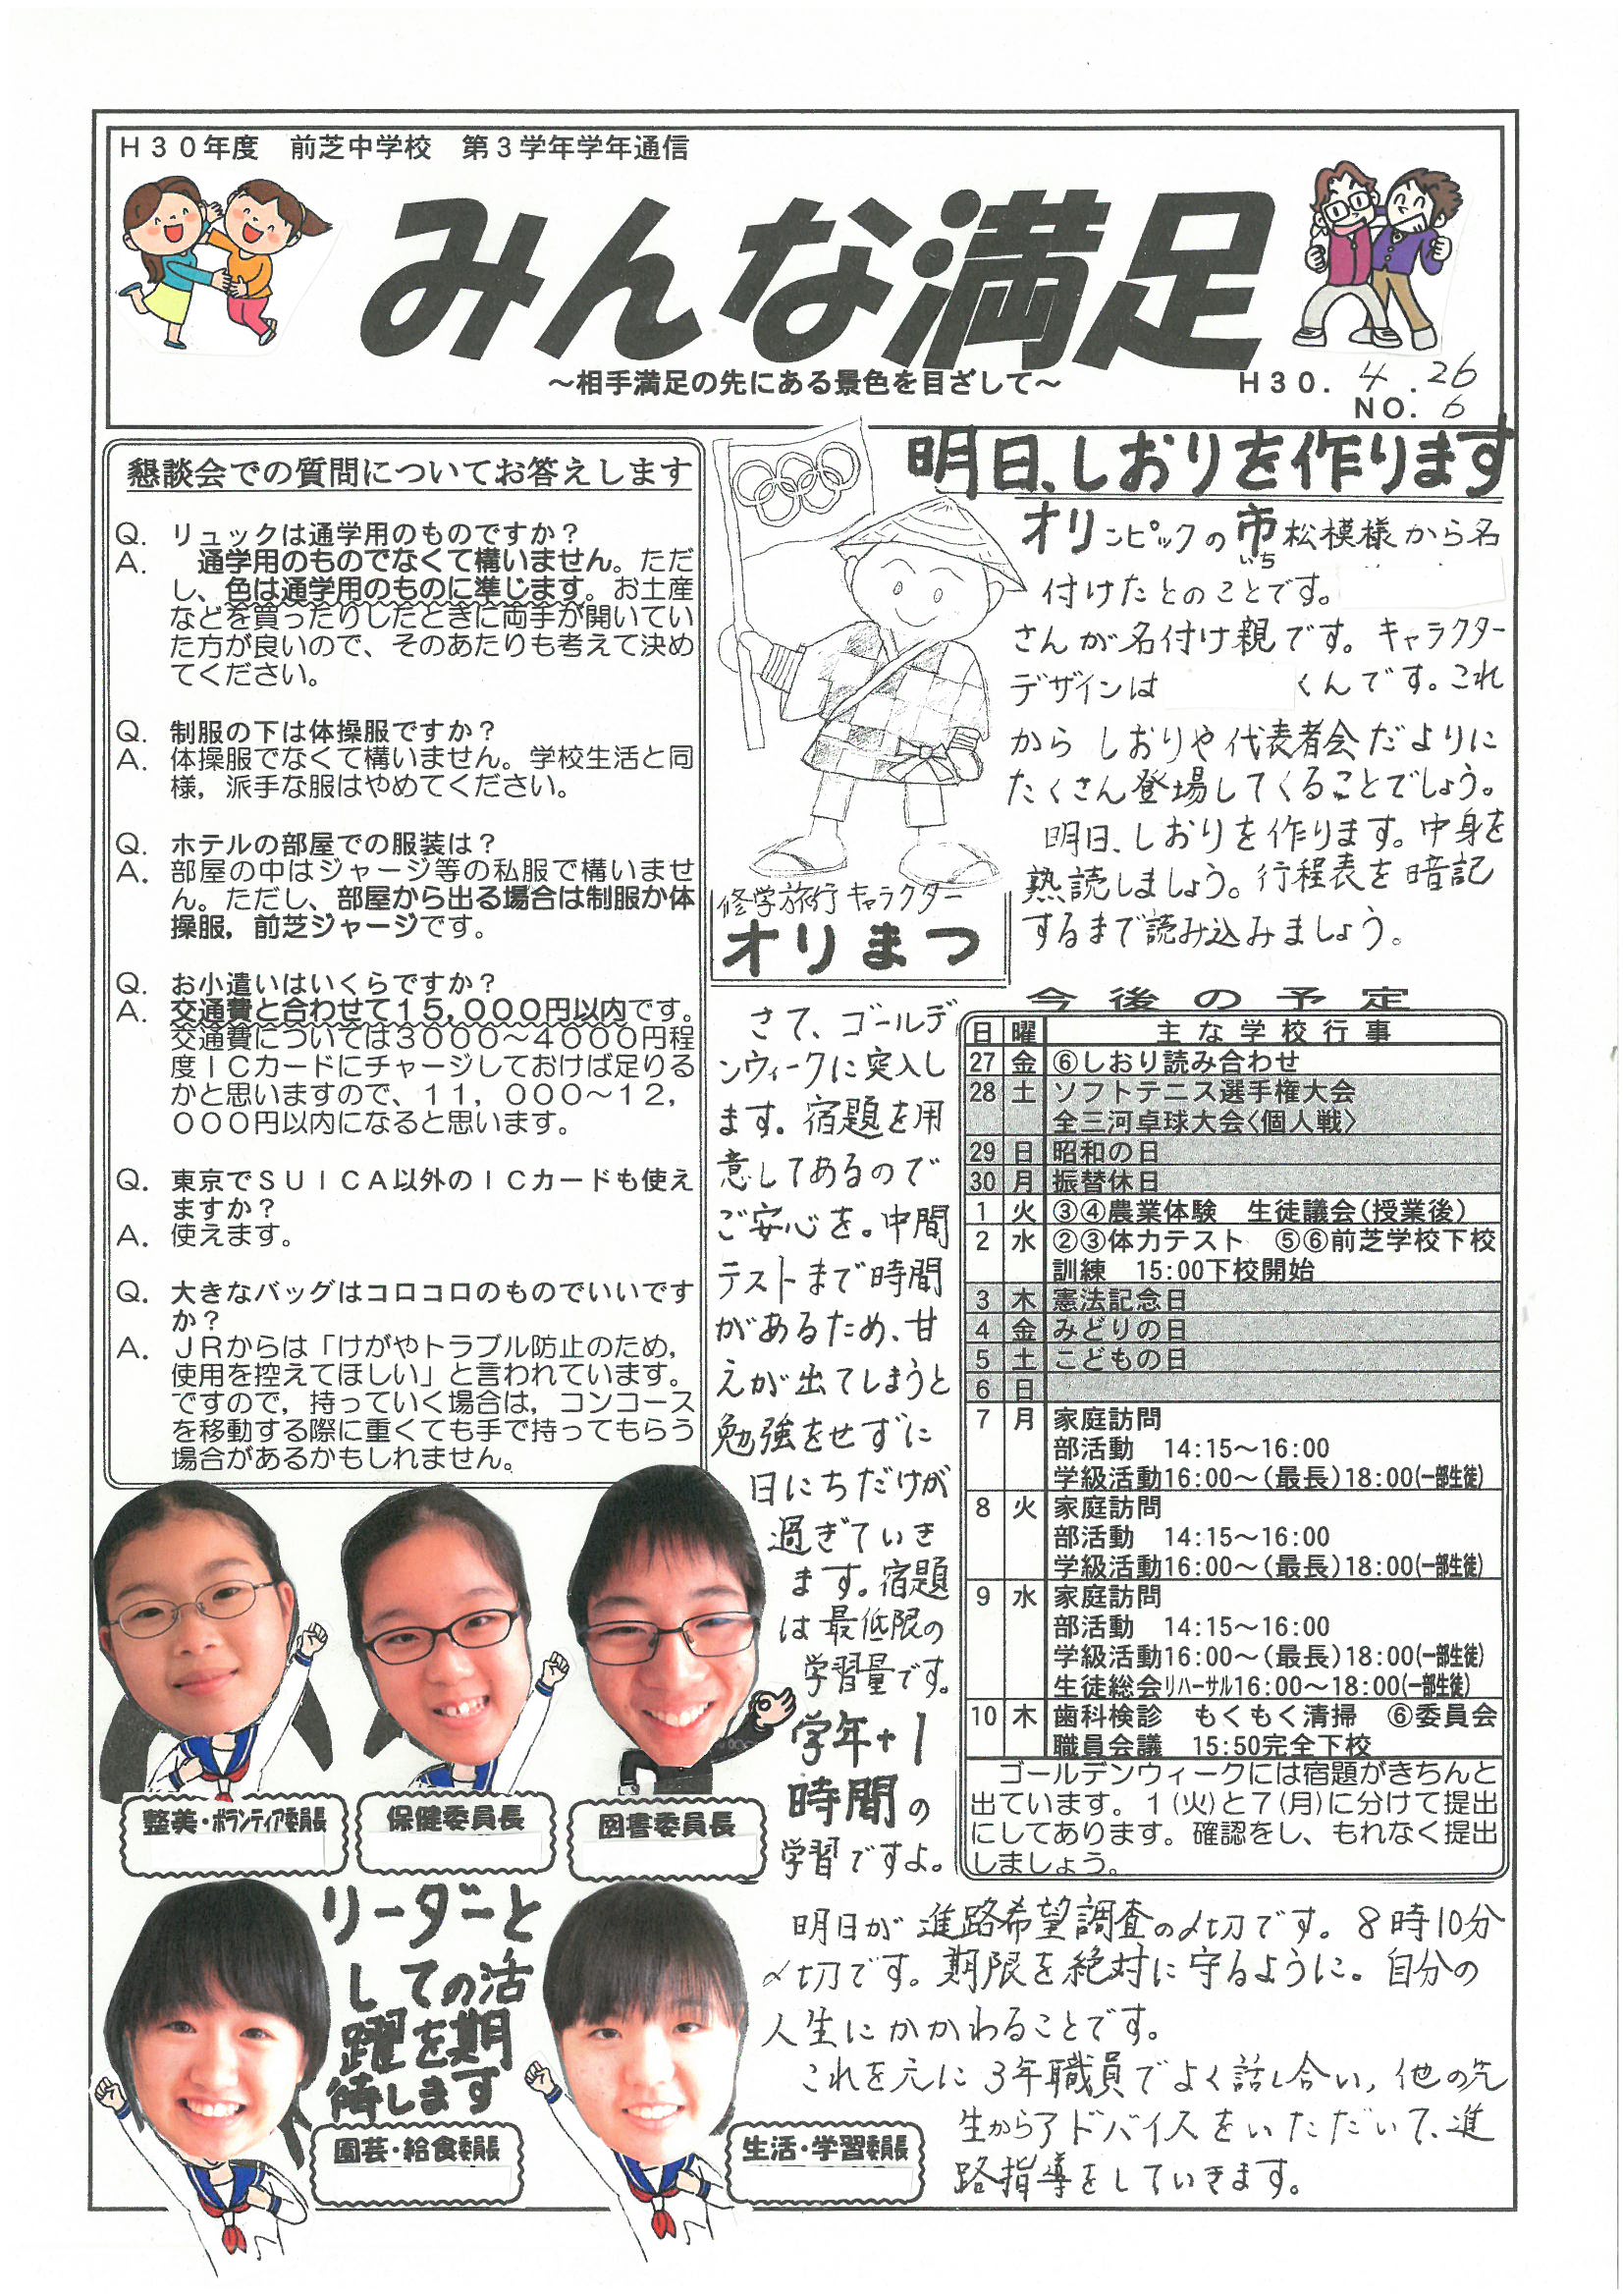 H30年度 前芝中学校 第3学年学年通信
みんな満足
～相手満足の先にある景色を目ざして～
H30. 4 .26
NO. 6
懇談会での質問についてお答えします
Q. リュックは通学用のものですか？
A. 通学用のものでなくて構いません。ただ
し、色は通学用のものに準じます。お土産
などを買ったりしたときに両手が開いてい
た方が良いので、そのあたりも考えて決め
てください。
Q. 制服の下は体操服ですか？
A. 体操服でなくて構いません。学校生活と同
様，派手な服はやめてください。
Q. ホテルの部屋での服装は？
A. 部屋の中はジャージ等の私服で構いませ
ん。ただし、部屋から出る場合は制服か体
操服，前芝ジャージです。
Q. お小遣いはいくらですか？
A. 交通費と合わせて１５，０００円以内です。
交通費については３０００～４０００円程
度ＩＣカードにチャージしておけば足りる
かと思いますので、１１，０００～１２，
０００円以内になると思います。
Q. 東京でＳＵＩＣＡ以外のＩＣカードも使え
ますか？
A. 使えます。
Q. 大きなバッグはコロコロのものでいいです
か？
A. ＪＲからは「けがやトラブル防止のため，
使用を控えてほしい」と言われています。
ですので，持っていく場合は，コンコース
を移動する際に重くても手で持ってもらう
場合があるかもしれません。
修学旅行キャラクター
オリまつ
明日、しおりを作ります
オリンピックの市松模様から名
いち
付けたとのことです。
さんが名付け親です。キャラクター
デザインは くんです。これ
から しおりや代表者会だよりに
たくさん登場してくることでしょう。
明日、しおりを作ります。中身を
熟読しましょう。行程表を暗記
するまで読み込みましょう。
さて、ゴールデ
ンウィークに突入し
ます。宿題を用
意してあるので
ご安心を。中間
テストまで時間
があるため、甘
えが出てしまうと
勉強をせずに
日にちだけが
過ぎていき
ます。宿題
は最低限の
学習量です。
学年+1
時間の
学習ですよ。
今後の予定
日 曜 主な学校行事
27 金 ⑥しおり読み合わせ
28 土 ソフトテニス選手権大会
全三河卓球大会〈個人戦〉
29 日 昭和の日
30 月 振替休日
1 火 ③④農業体験 生徒議会（授業後）
2 水 ②③体力テスト ⑤⑥前芝学校下校
訓練 15:00下校開始
3 木 憲法記念日
4 金 みどりの日
5 土 こどもの日
6 日
7 月 家庭訪問
部活動 14:15～16:00
学級活動16:00～（最長）18:00（一部生徒）
8 火 家庭訪問
部活動 14:15～16:00
学級活動16:00～（最長）18:00（一部生徒）
9 水 家庭訪問
部活動 14:15～16:00
学級活動16:00～（最長）18:00（一部生徒）
生徒総会リハーサル16:00～18:00（一部生徒）
10 木 歯科検診 もくもく清掃 ⑥委員会
職員会議 15:50完全下校
ゴールデンウィークには宿題がきちんと
出ています。１(火)と７(月)に分けて提出
にしてあります。確認をし、もれなく提出
しましょう。
整美・ボランティア委員長
保健委員長
図書委員長
リーダーと
しての活
躍を期
待します
園芸・給食委員長
生活・学習委員長
明日が進路希望調査の〆切です。8時10分
〆切です。期限を絶対に守るように。自分の
人生にかかわることです。
これを元に3年職員でよく話し合い，他の先
生からアドバイスをいただいて、進
路指導をしていきます。